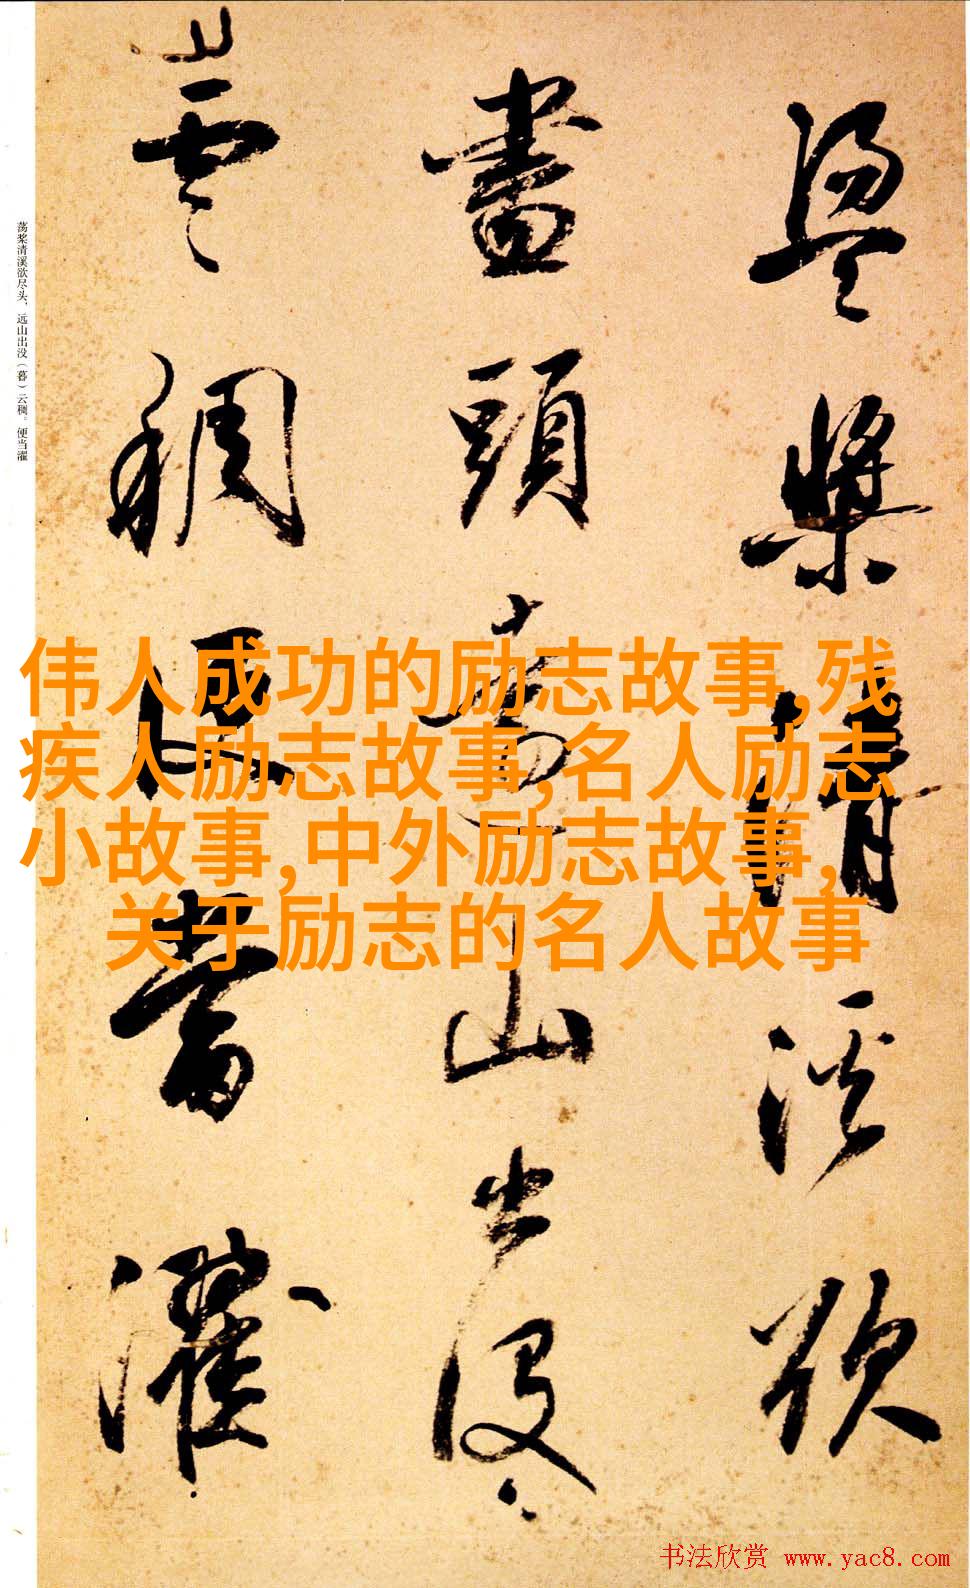 盪槳清溪欲
盡頭遠山出没
雲稠便當濯
荡桨清溪欲尽头，远山出没（暮）云稠。便当濯
伟人成功的励志故事,残
疾人励志故事,名人励志
小故事,中外励志故事,
关于励志的名人故事
书法欣赏 www.yac8.com